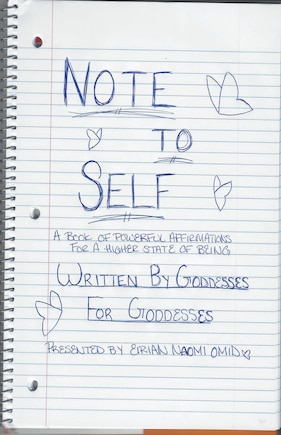 NOTE
TO
SELF
A BOOK OF POWERFUL AFFIRMATIONS
FOR A HIGHER STATE OF BEING
WRITTEN BY GODDESSES
FOR GODDESSES
PRESENTED BY EIRIAN NAOMI OMID